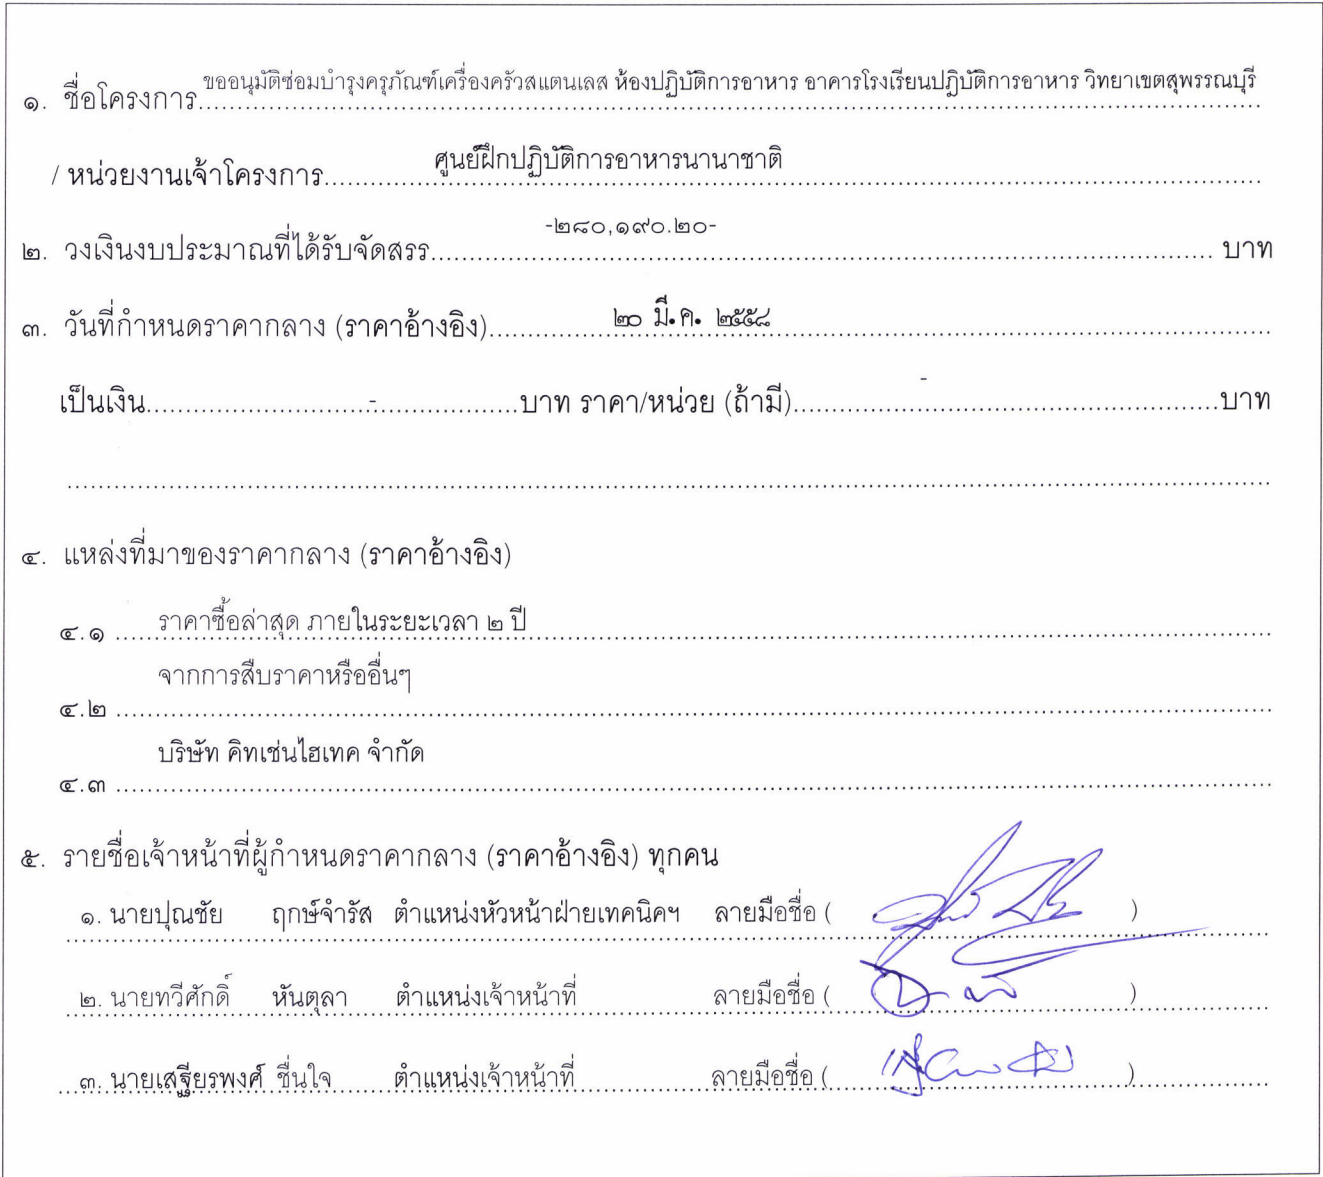 ๑. ชื่อโครงการ ขออนุมัติซ่อมบำรุงครุภัณฑ์เครื่องครัวสแตนเลส ห้องปฏิบัติการอาหาร อาคารโรงเรียนปฏิบัติการอาหาร วิทยาเขตสุพรรณบุรี
/ หน่วยงานเจ้าโครงการ ศูนย์ฝึกปฏิบัติการอาหารนานาชาติ
๒. วงเงินงบประมาณที่ได้รับจัดสรร -๒๘๐,๑๙๐.๒๐- บาท
๓. วันที่กำหนดราคากลาง (ราคาอ้างอิง) ๒๐ มี.ค. ๒๕๕๘
เป็นเงิน - บาท ราคา/หน่วย (ถ้ามี) - บาท
๔. แหล่งที่มาของราคากลาง (ราคาอ้างอิง)
๔.๑ ราคาซื้อล่าสุด ภายในระยะเวลา ๒ ปี
๔.๒ จากการสืบราคาหรืออื่นๆ
๔.๓ บริษัท คิทเช่นไฮเทค จำกัด
๕. รายชื่อเจ้าหน้าที่ผู้กำหนดราคากลาง (ราคาอ้างอิง) ทุกคน
๑. นายปุณชัย ฤกษ์จำรัส ตำแหน่งหัวหน้าฝ่ายเทคนิคฯ ลายมือชื่อ ( )
๒. นายทวีศักดิ์ หันตุลา ตำแหน่งเจ้าหน้าที่ ลายมือชื่อ ( )
๓. นายเสฐียรพงศ์ ชื่นใจ ตำแหน่งเจ้าหน้าที่ ลายมือชื่อ ( )